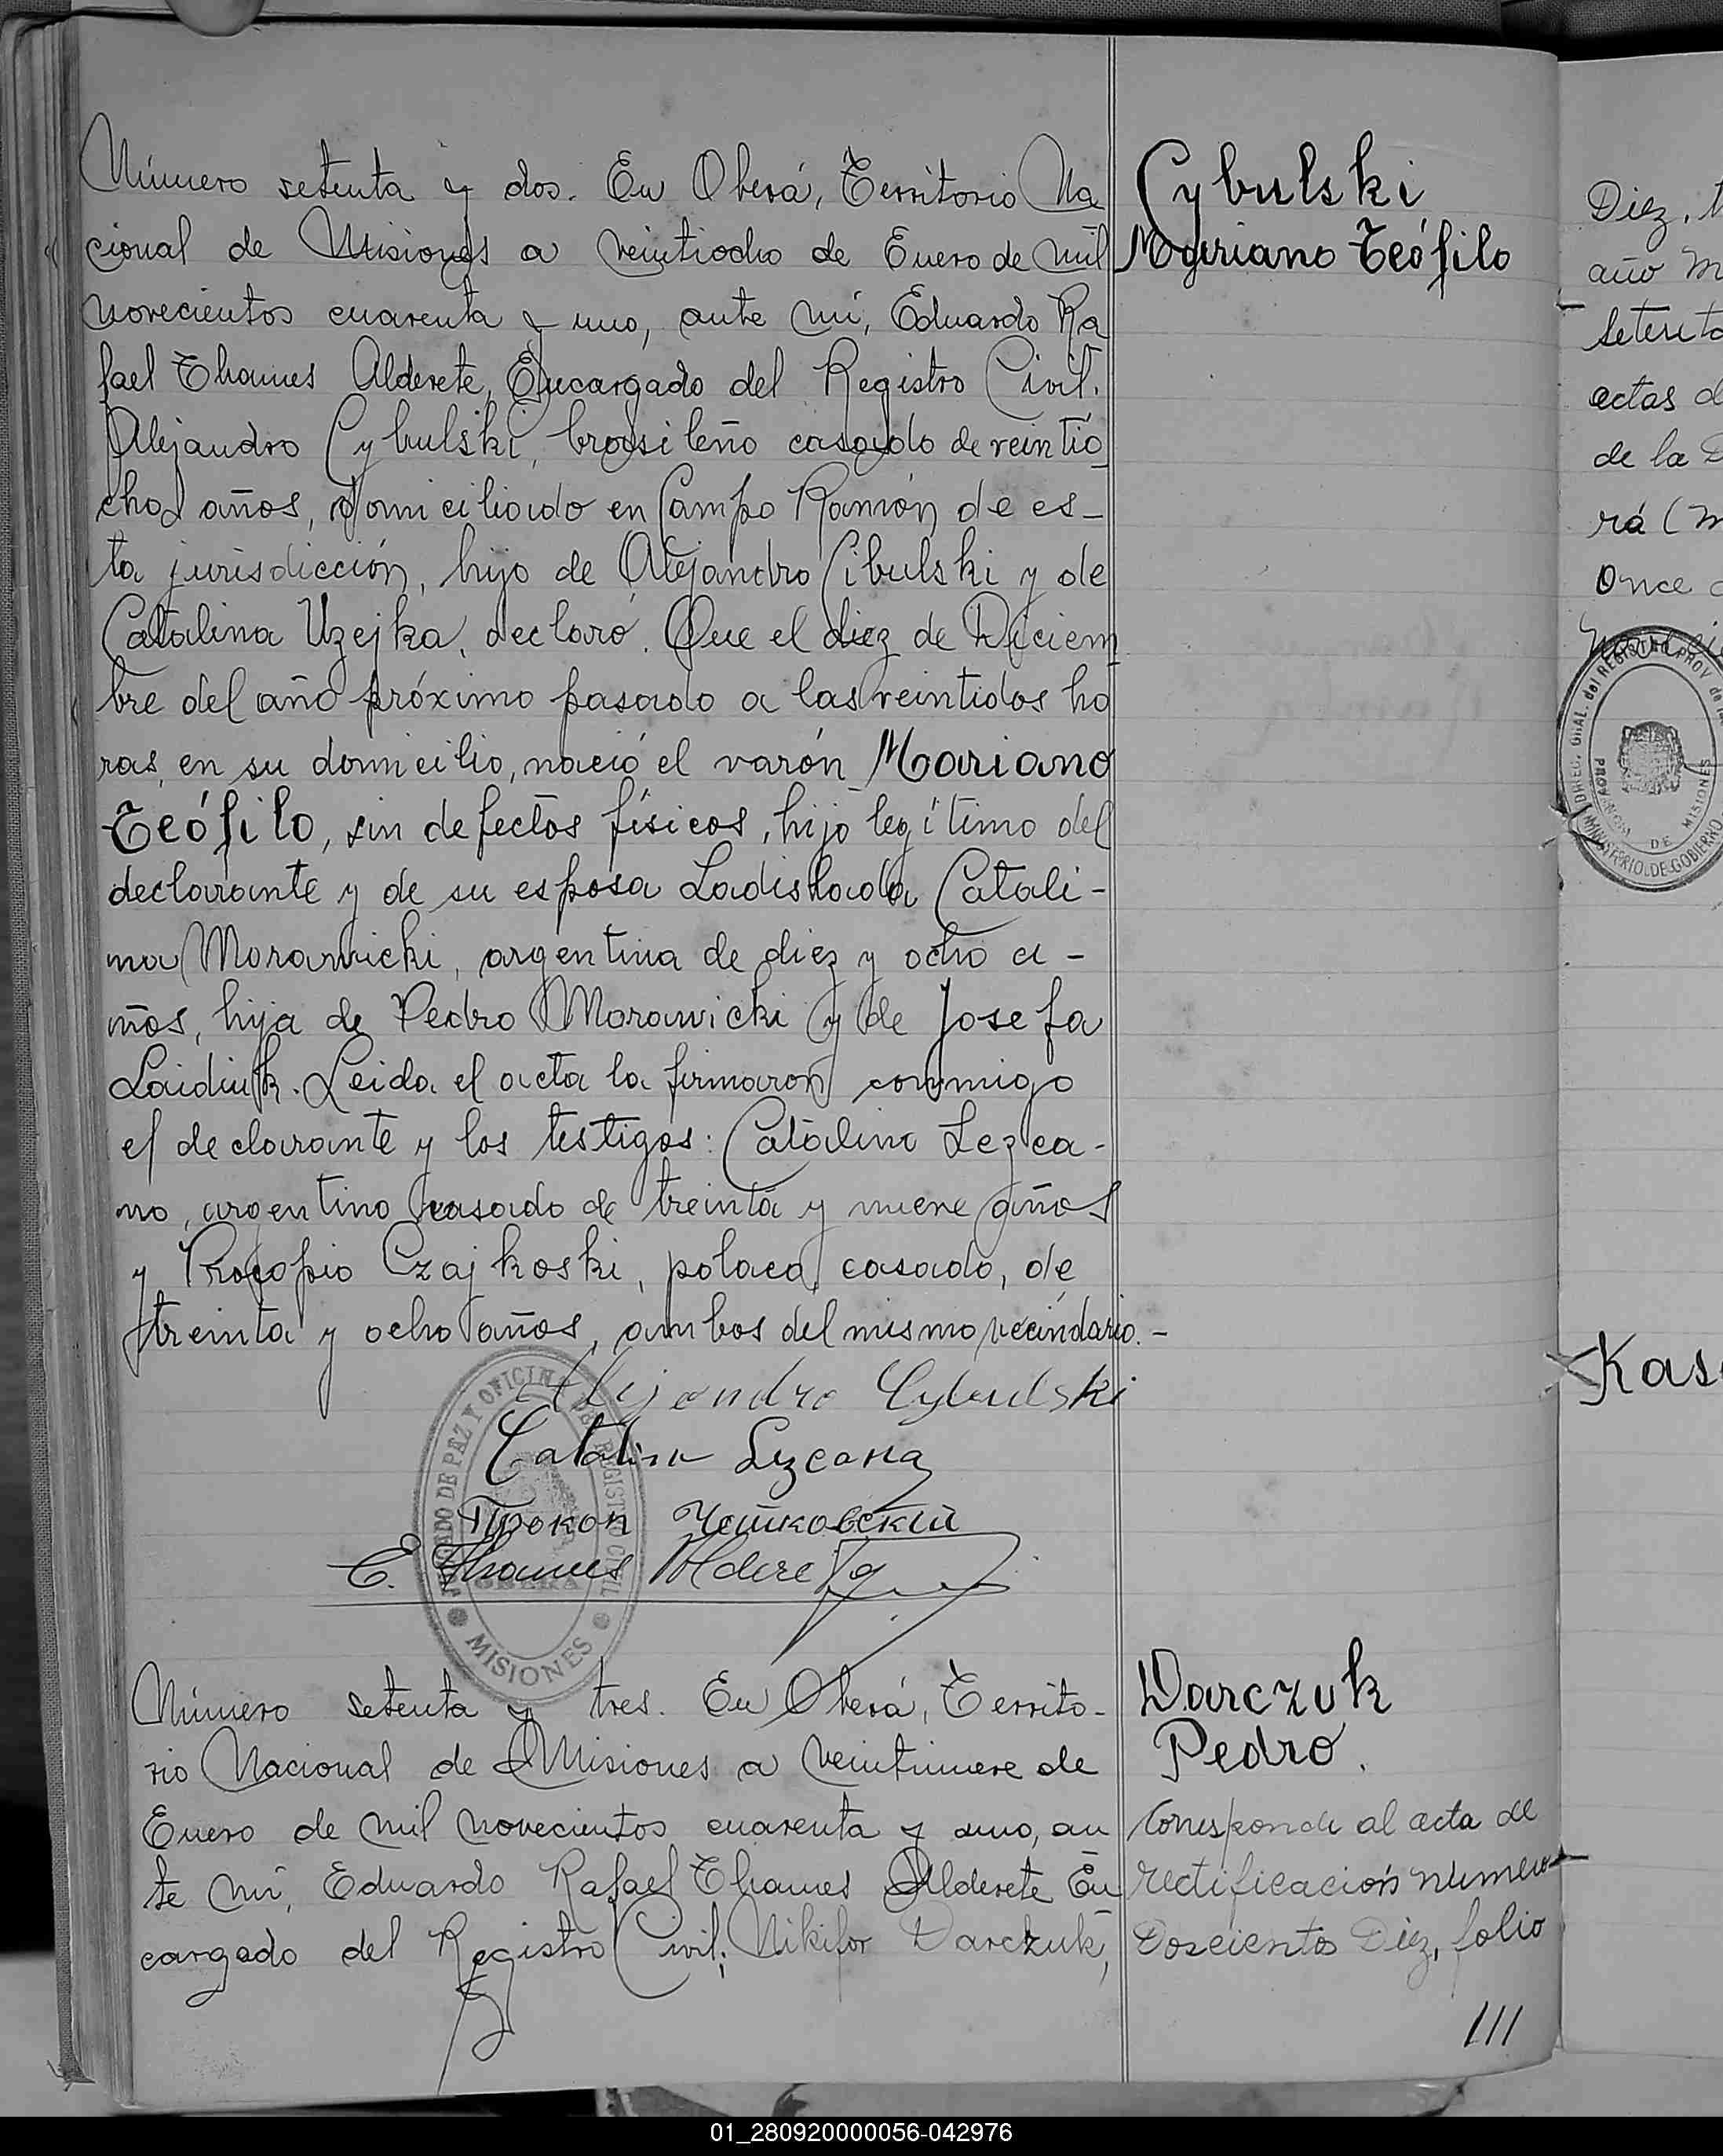 Número setenta y dos. En Oberá, Territorio Na
cional de Misiones a veintiocho de Enero de mil
novecientos cuarenta y uno, ante mí, Eduardo Ra
fael Thames Alderete, Encargado del Registro Civil.
Alejandro Cybulski, brasileño casado de veintio
cho años, domiciliado en Campo Ramón de es-
ta jurisdicción, hijo de Alejandro Cibulski y de
Catalina Uzejka, declaró. Que el diez de Diciem
bre del año próximo pasado a las veintidos ho
ras, en su domicilio, nació el varón Mariano
Teófilo, sin defectos físicos, hijo legítimo del
declarante y de su esposa Ladislada Catali-
na Morawicki, argentina de diez y ocho a-
ños, hija de Pedro Morawicki y de Josefa
Laidiuk. Leida el acta la firmaron conmigo
el declarante y los testigos: Catalino Lezca-
no, argentino casado de treinta y nueve años
y Procopio Czajkoski, polaco, casado, de
treinta y ocho años, ambos del mismo vecindario.-
Alejandro Cybulski
Catalino Lezcano
Прокоп Чайковский
E. Thames Alderete
JUZGADO DE PAZ Y OFICINA DEL REGISTRO CIVIL
OBERA
MISIONES
Número setenta y tres. En Oberá, Territo-
rio Nacional de Misiones a veintinueve de
Enero de mil novecientos cuarenta y uno, an
te mí, Eduardo Rafael Thames Alderete En
cargado del Registro Civil; Nikifor Darczuk,
Cybulski
Mariano Teófilo
Darczuk
Pedro.
Corresponde al acta de
rectificación número
Doscientos Diez, folio
111
Diez,
año
actas
de la
rá
Once
DIREC. GRAL. del REGISTRO PROV de las
PROVINCIA DE MISIONES
MINISTERIO DE GOBIERNO
01_280920000056-042976